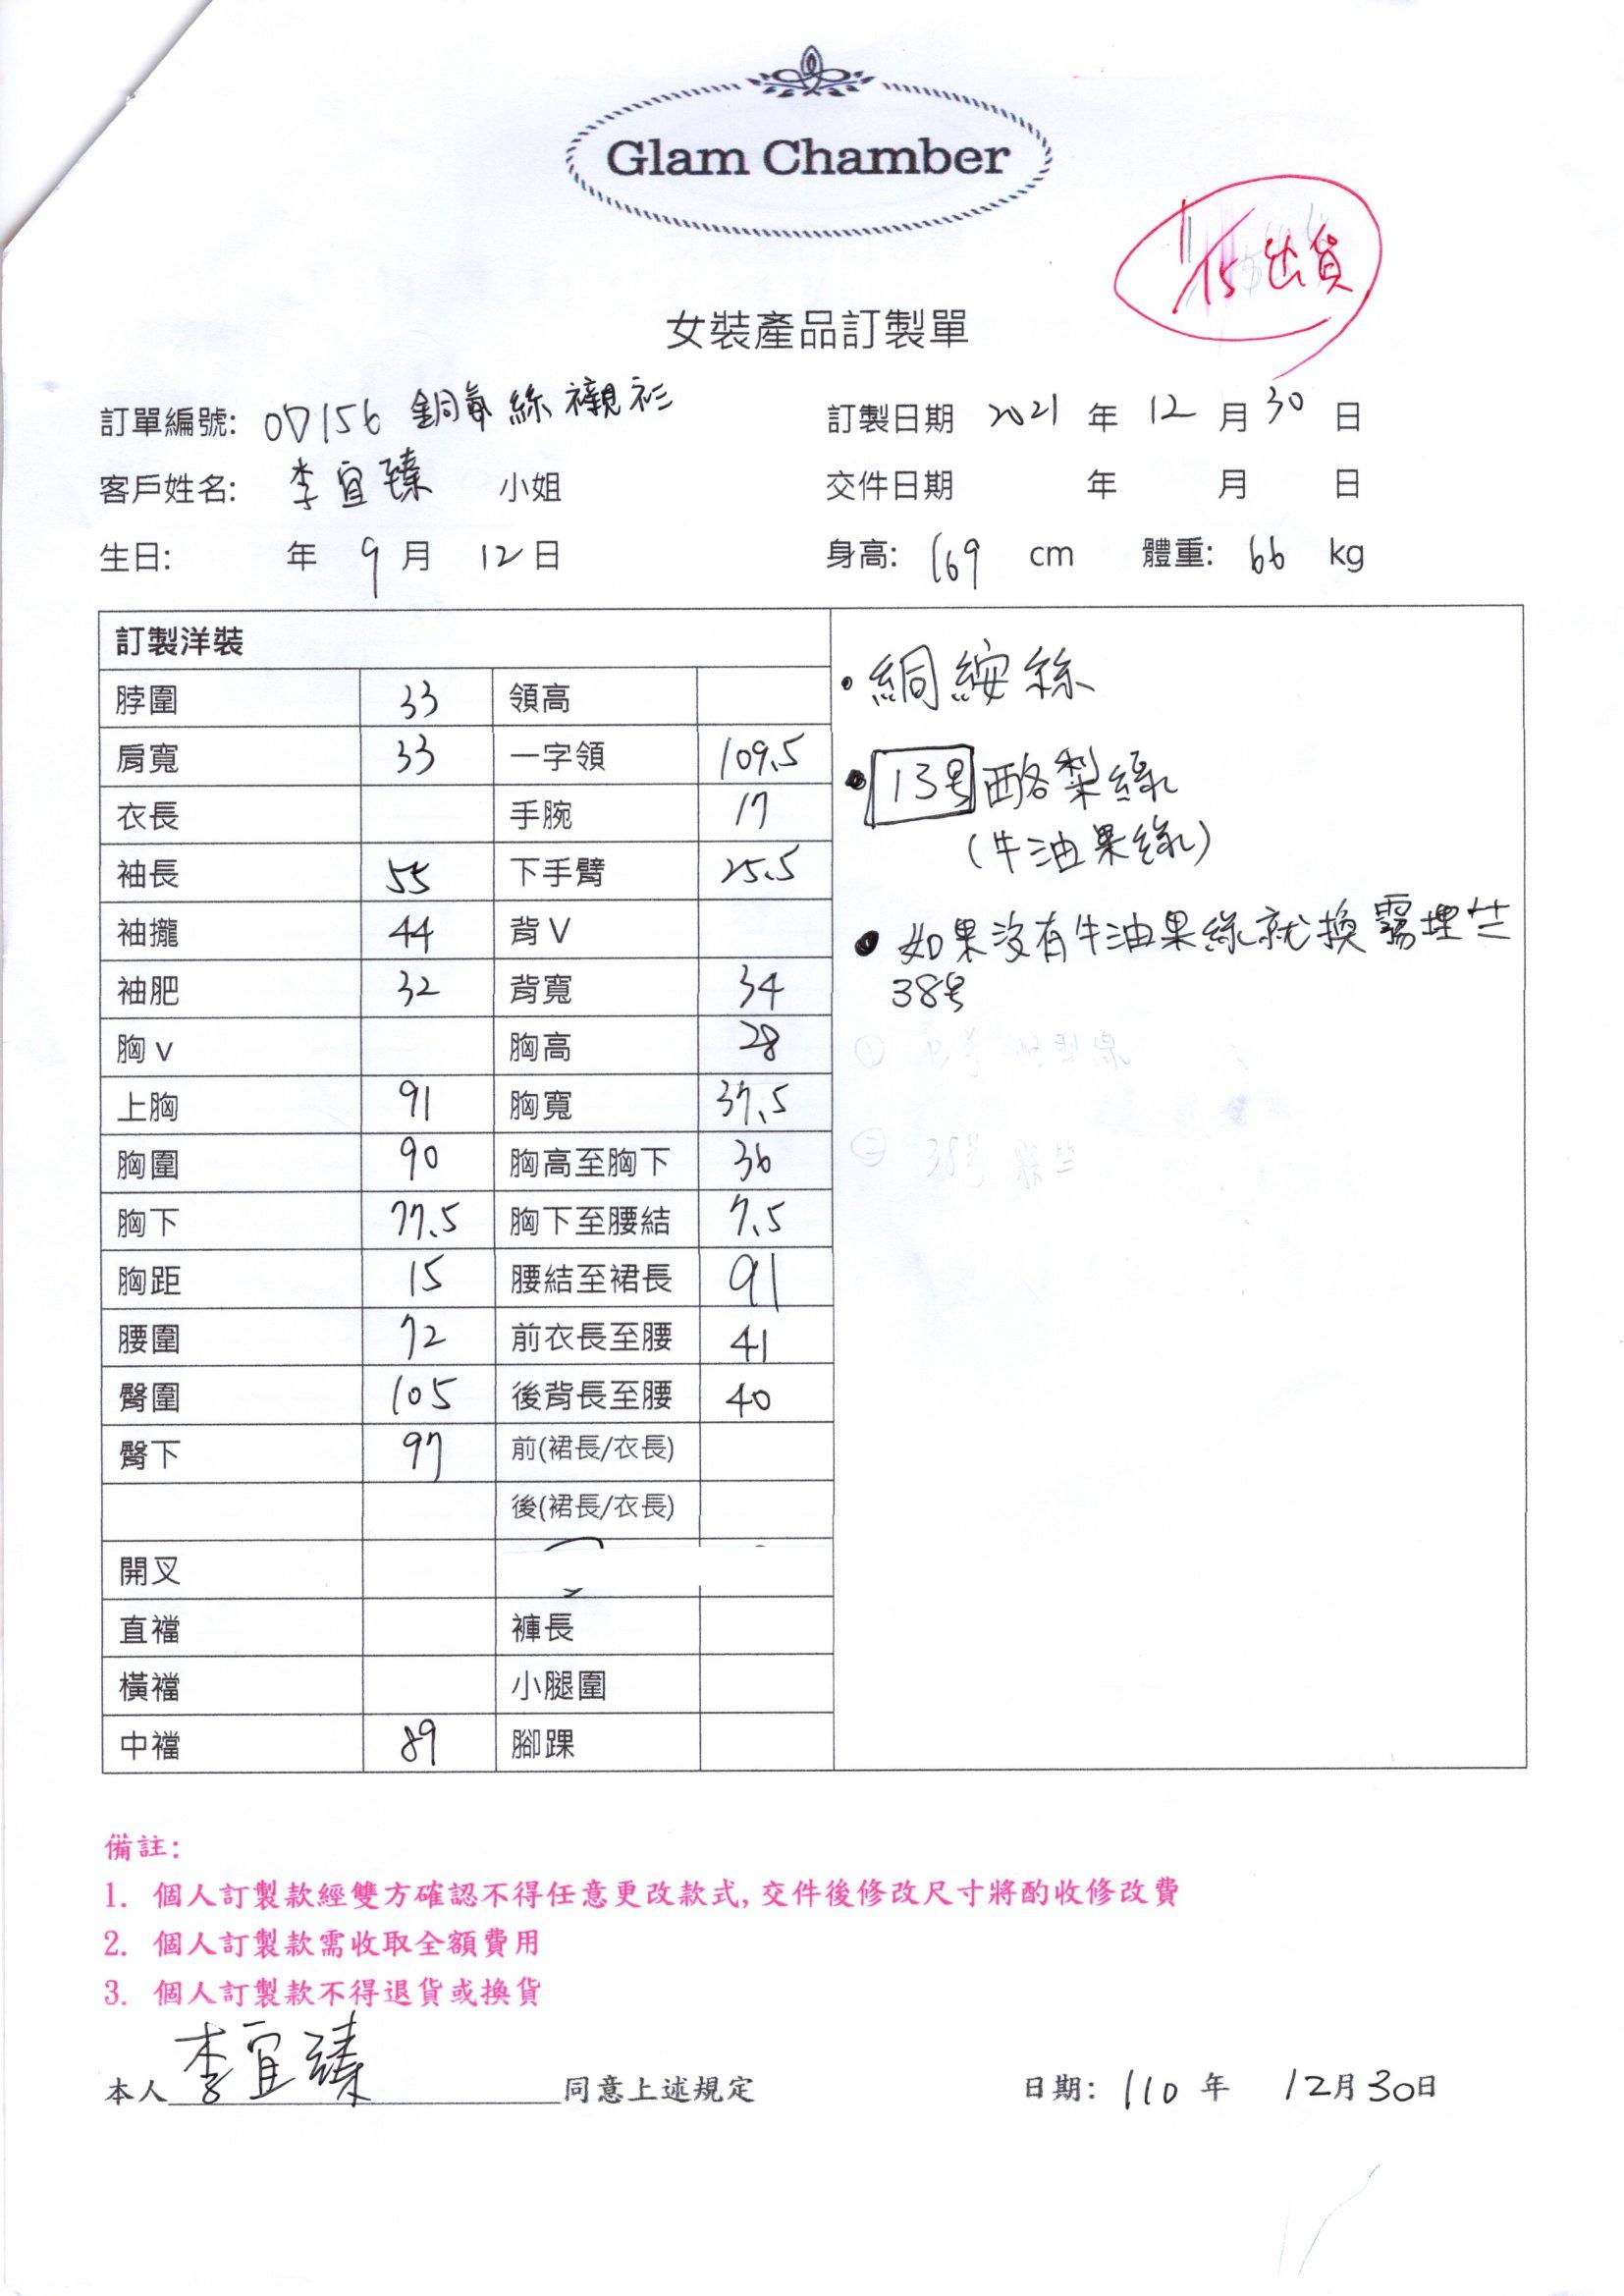 Glam Chamber
1/15出貨
女裝產品訂製單
訂單編號: OD156 銅氨絲襯衫 訂製日期 2021 年 12 月 30 日
客戶姓名: 李宜臻 小姐 交件日期 年 月 日
生日: 年 9 月 12 日 身高: 169 cm 體重: 66 kg
訂製洋裝
脖圍 33 領高
肩寬 33 一字領 109.5
衣長 手腕 17
袖長 55 下手臂 25.5
袖攏 44 背V
袖肥 32 背寬 34
胸v 胸高 28
上胸 91 胸寬 37.5
胸圍 90 胸高至胸下 36
胸下 77.5 胸下至腰結 7.5
胸距 15 腰結至裙長 91
腰圍 72 前衣長至腰 41
臀圍 105 後背長至腰 40
臀下 97 前(裙長/衣長)
後(裙長/衣長)
開叉
直襠 褲長
橫襠 小腿圍
中襠 89 腳踝
• 絧絲
• 13号 酪梨綠
(牛油果綠)
• 如果沒有牛油果綠就換霧
38号
備註:
1. 個人訂製款經雙方確認不得任意更改款式, 交件後修改尺寸將酌收修改費
2. 個人訂製款需收取全額費用
3. 個人訂製款不得退貨或換貨
本人 李宜臻 同意上述規定 日期: 110 年 12月30日